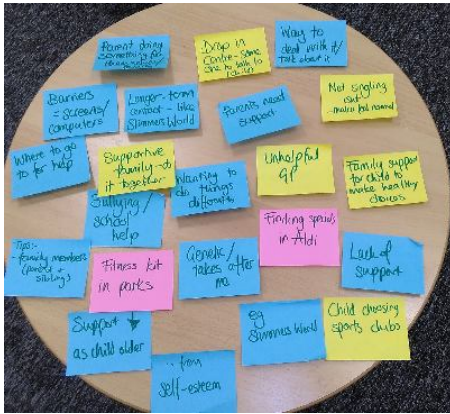 Parent doing
something for
Drop in
Centre - some
one to talk to
(child)
Way to
deal with it/
talk about it
Barriers
= screens/
computers
Longer-term
contact - like
Slimmers World
Parents need
support
Not singling
out
- make feel normal
Where to go
to for help
Supportive
family - do
it together
Wanting to
do things
differently
Unhelpful
GP
Family support
for child to
make healthy
choices
Bullying/
school
help
Finding specials
in Aldi
Tips:-
- family members
(parent +
sibling)
Fitness kit
in parks
Genetic/
takes after
me
Lack of
support
Support
as child older
eg
Slimmers World
Child choosing
sports clubs
from
self-esteem